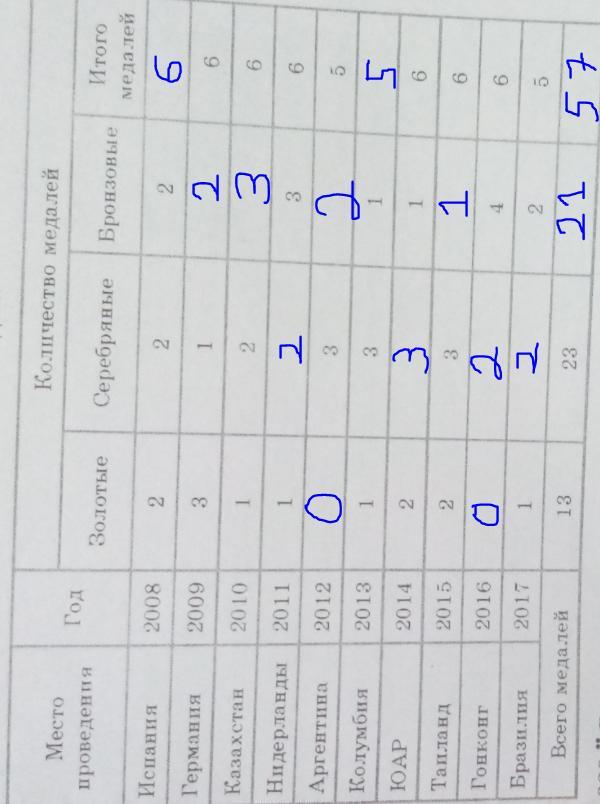 Место проведения Год Количество медалей
Золотые Серебряные Бронзовые Итого медалей
Испания 2008 2 2 2 6
Германия 2009 3 1 2 6
Казахстан 2010 1 2 3 6
Нидерланды 2011 1 2 3 6
Аргентина 2012 0 3 2 5
Колумбия 2013 1 3 1 5
ЮАР 2014 2 3 1 6
Таиланд 2015 2 3 1 6
Гонконг 2016 0 2 4 6
Бразилия 2017 1 2 2 5
Всего медалей 13 23 21 57